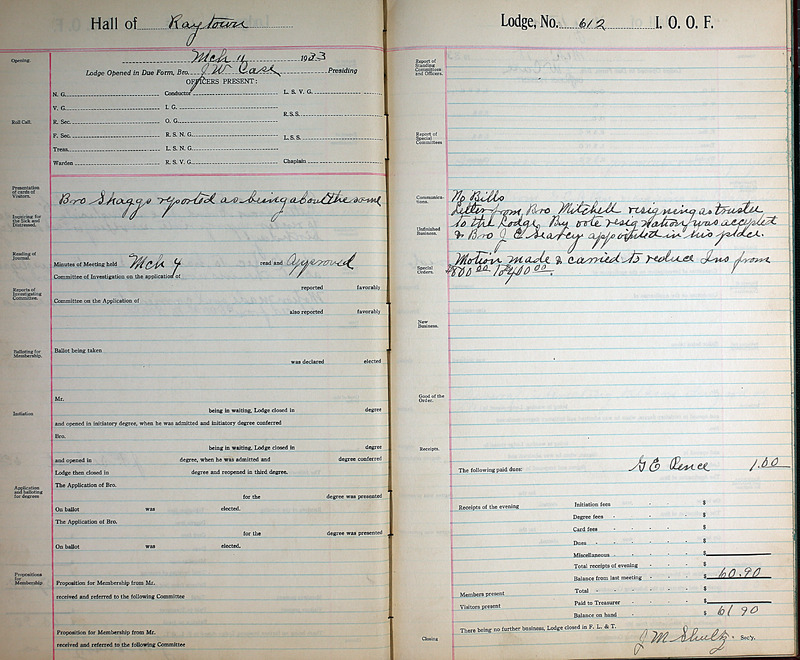 Hall of Raytown
Mch 11 1933
Opening.
Lodge Opened in Due Form, Bro. J W Case Presiding
OFFICERS PRESENT:
N. G. Conductor L. S. V. G.
V. G. I. G.
R. S. S.
Roll Call.
R. Sec. O. G.
F. Sec. R. S. N. G.
L. S. S.
Treas. L. S. N. G.
Warden R. S. V. G. Chaplain
Presentation of cards of Visitors.
Bro Skaggs reported as being about the same
Inquiring for the Sick and Distressed.
Reading of Journal.
Minutes of Meeting held Mch 4 read and Approved
Committee of Investigation on the application of
reported favorably
Reports of Investigating Committee.
Committee on the Application of
also reported favorably
Balloting for Membership.
Ballot being taken
was declared elected
Mr.
being in waiting, Lodge closed in degree
Initiation
and opened in initiatory degree, when he was admitted and initiatory degree conferred
Bro.
being in waiting, Lodge closed in degree
and opened in degree, when he was admitted and degree conferred
Lodge then closed in degree and reopened in third degree.
Application and balloting for degrees
The Application of Bro.
for the degree was presented
On ballot was elected.
The Application of Bro.
for the degree was presented
On ballot was elected.
Propositions for Membership
Proposition for Membership from Mr.
received and referred to the following Committee
Proposition for Membership from Mr.
received and referred to the following Committee
Lodge, No. 612 I. O. O. F.
Report of Standing Committees and Officers.
Report of Special Committees
Communications.
No Bills
Letter from Bro Mitchell resigning as trustee
to the Lodge. By vote resignation was accepted
& Bro J E Searcy appointed in his place.
Unfinished Business.
Motion made & carried to reduce Ins from
Special Orders.
$800.00 to 400.00.
New Business.
Good of the Order.
Receipts.
The following paid dues: G E Pence 1.00
Receipts of the evening Initiation fees $
Degree fees $
Card fees $
Dues $
Miscellaneous $
Total receipts of evening $
Balance from last meeting $ 60.90
Members present Total $
Visitors present Paid to Treasurer $
Balance on hand $ 61 90
Closing
There being no further business, Lodge closed in F. L. & T.
J M Shultz. Sec'y.